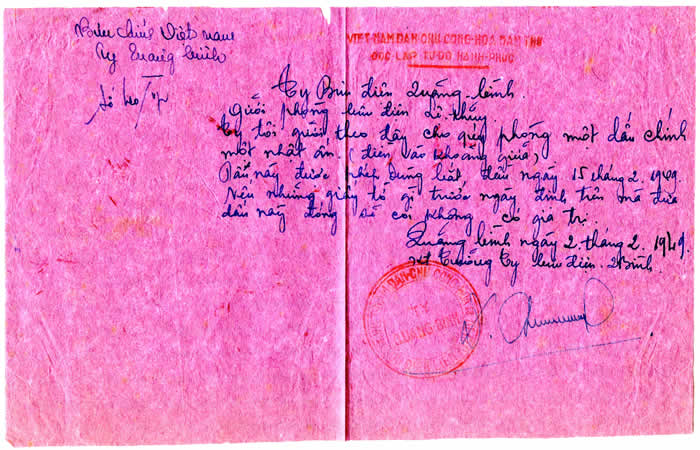 Bưu chính Việt nam
Ty Quảng bình
Số
VIET-NAM DAN-CHU CONG-HOA DAN THU
ĐOC-LAP TU-DO HANH-PHUC
Ty Bưu điện Quảng-bình.
gửi phòng bưu điện Lê thủy.
Ty tôi gửi theo đây cho quý phòng một dấu chính
một nhật ấn. (điền vào khoảng giữa)
Dấu này được phép dùng bắt đầu ngày 15 tháng 2. 1949.
Nếu những giấy tờ gì trước ngày định trên mà đưa
dấu này đóng sẽ coi không có giá trị.
Quảng bình ngày 2. tháng 2. 1949.
Trưởng Ty bưu điện. QBình.
DAN-CHU CONG-HOA
QUANG BINH